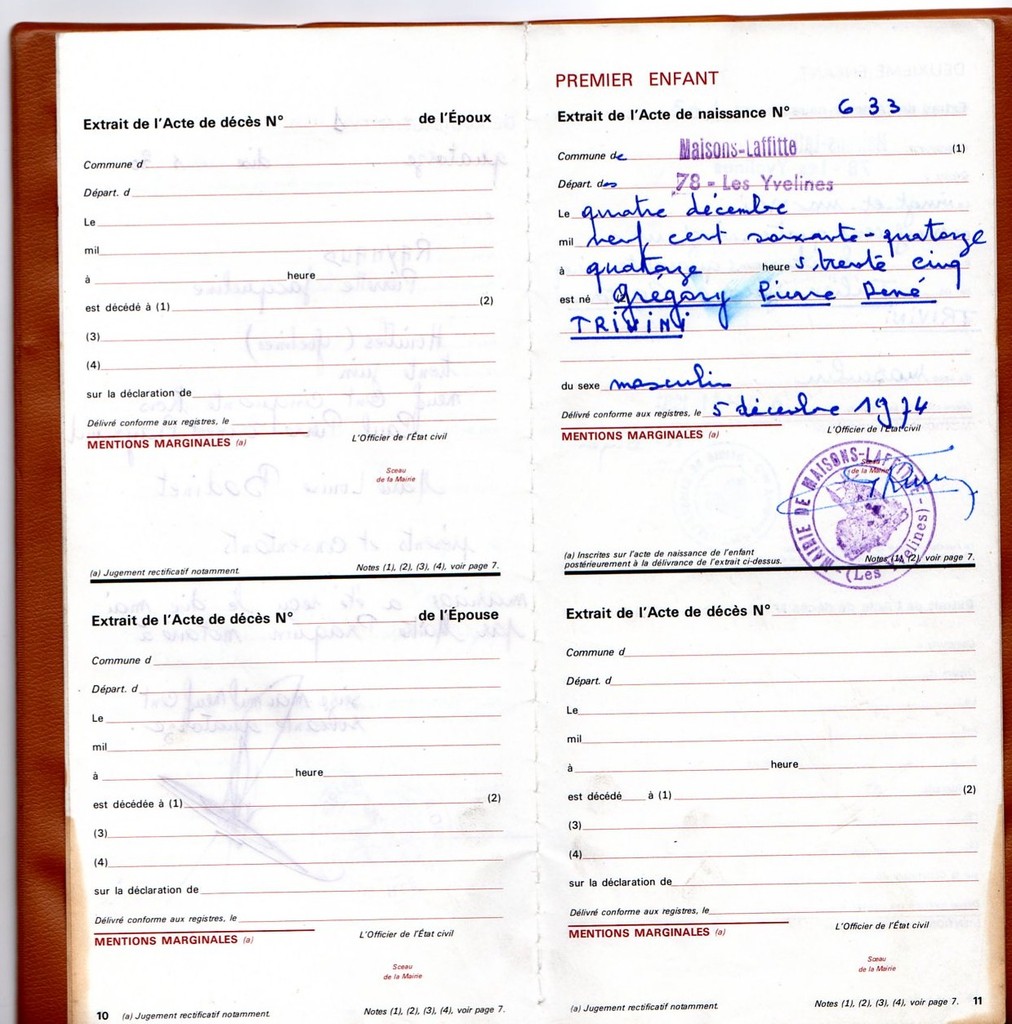 Extrait de l'Acte de décès N° de l'Époux
Commune d
Départ. d
Le
mil
à heure
est décédé à (1) (2)
(3)
(4)
sur la déclaration de
Délivré conforme aux registres, le
MENTIONS MARGINALES (a) L'Officier de l'État civil
Sceau
de la Mairie
(a) Jugement rectificatif notamment. Notes (1), (2), (3), (4), voir page 7.
Extrait de l'Acte de décès N° de l'Épouse
Commune d
Départ. d
Le
mil
à heure
est décédée à (1) (2)
(3)
(4)
sur la déclaration de
Délivré conforme aux registres, le
MENTIONS MARGINALES (a) L'Officier de l'État civil
Sceau
de la Mairie
10 (a) Jugement rectificatif notamment. Notes (1), (2), (3), (4), voir page 7.
PREMIER ENFANT
Extrait de l'Acte de naissance N° 633
Commune de Maisons-Laffitte (1)
Départ. des 78 - Les Yvelines
Le quatre décembre
mil neuf cent soixante-quatorze
à quatorze heures trente cinq
est né (2) Grégory Pierre René
TRIVINI
du sexe masculin
Délivré conforme aux registres, le 5 décembre 1974
MENTIONS MARGINALES (a) L'Officier de l'État civil
Sceau
de la Mairie
MAIRIE DE MAISONS-LAFFITTE - (Les Yvelines) -
(a) Inscrites sur l'acte de naissance de l'enfant
postérieurement à la délivrance de l'extrait ci-dessus. Notes (1), (2), voir page 7.
Extrait de l'Acte de décès N°
Commune d
Départ. d
Le
mil
à heure
est décédé à (1) (2)
(3)
(4)
sur la déclaration de
Délivré conforme aux registres, le
MENTIONS MARGINALES (a) L'Officier de l'État civil
Sceau
de la Mairie
(a) Jugement rectificatif notamment. Notes (1), (2), (3), (4), voir page 7. 11